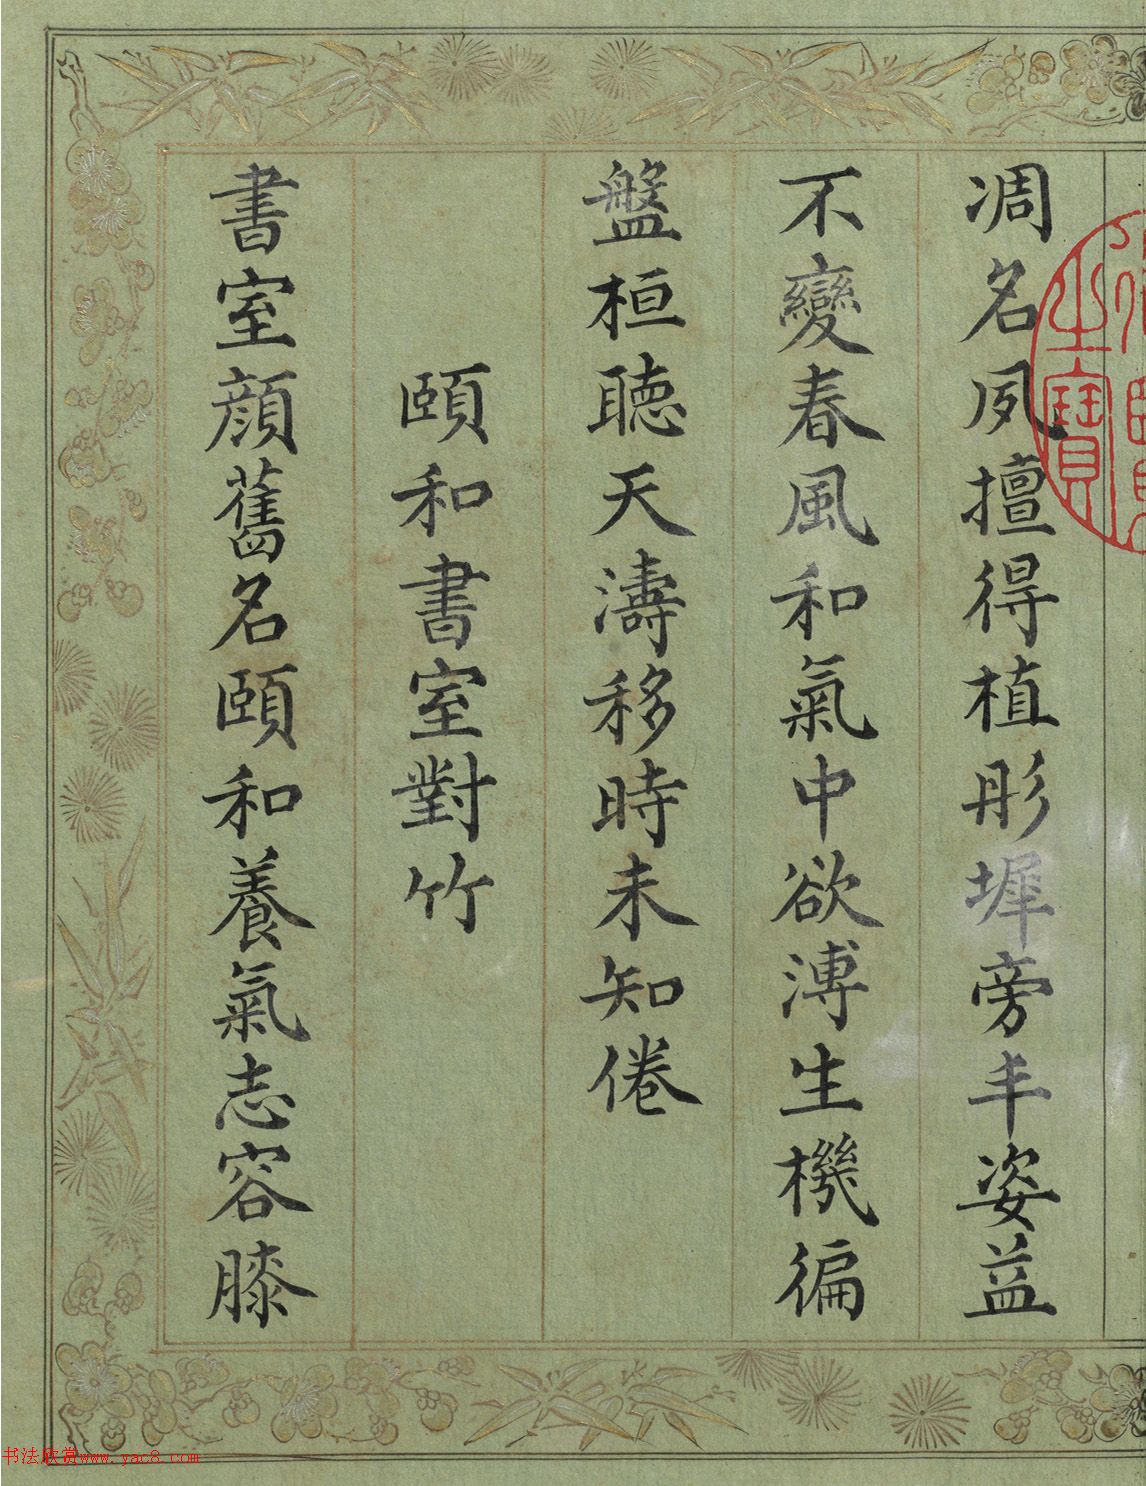 凋名夙擅得植彤墀旁丰姿益
不變春風和氣中欲溥生機徧
盤桓聽天濤移時未知倦
頤和書室對竹
書室顏舊名頤和養氣志容膝
之寶
书法欣赏www.yac8.com